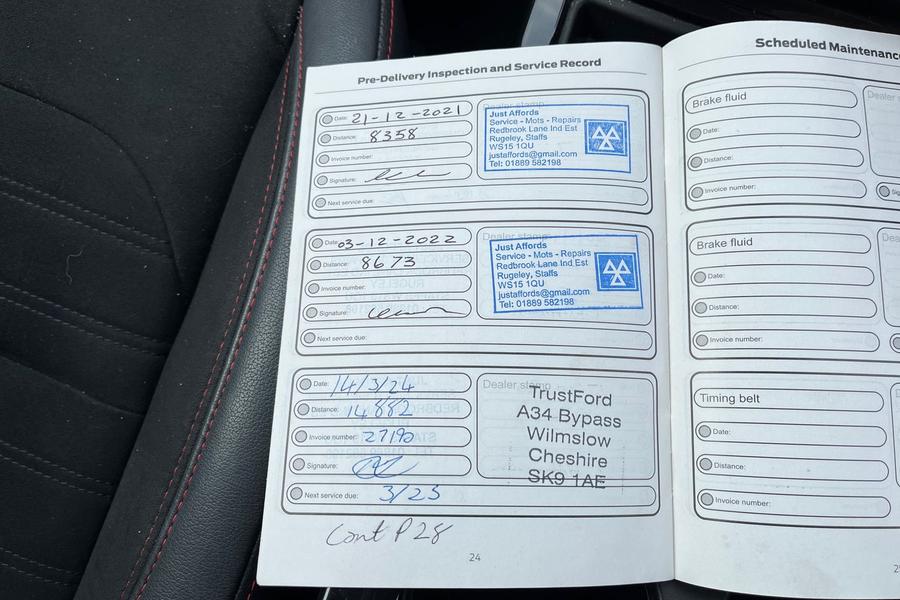 Pre-Delivery Inspection and Service Record
Date: 21-12-2021
Distance: 8358
Invoice number:
Signature:
Next service due:
Dealer stamp
Just Affords
Service - Mots - Repairs
Redbrook Lane Ind Est
Rugeley, Staffs
WS15 1QU
justaffords@gmail.com
Tel: 01889 582198
Date: 03-12-2022
Distance: 8673
Invoice number:
Signature:
Next service due:
Dealer stamp
Just Affords
Service - Mots - Repairs
Redbrook Lane Ind Est
Rugeley, Staffs
WS15 1QU
justaffords@gmail.com
Tel: 01889 582198
Date: 14/3/24
Distance: 14882
Invoice number:
Signature:
Next service due: 3/25
Dealer stamp
TrustFord
A34 Bypass
Wilmslow
Cheshire
SK9 1AE
Cont P28
24
Scheduled Maintenanc
Brake fluid
Date:
Distance:
Invoice number:
Dealer
Brake fluid
Date:
Distance:
Invoice number:
Timing belt
Date:
Distance:
Invoice number: